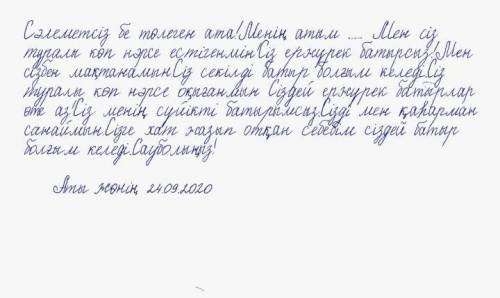 Сәлеметсіз бе төлеген ата!Менің атым ..... Мен сіз
туралы көп нәрсе естігенмін.Сіз ержүрек батырсыз!Мен
сізбен мақтанамын.Сіз секілді батыр болғым келеді.Сіз
туралы көп нәрсе оқығанмын.Сіздей ержүрек батырлар
өте аз!Сіз менің сүйікті батырымсыз.Сізді мен қаһарман
санаймын.Сізге хат жазып отқан себебім сіздей батыр
болғым келеді.Сауболыңыз!
Аты жөнің 24.09.2020